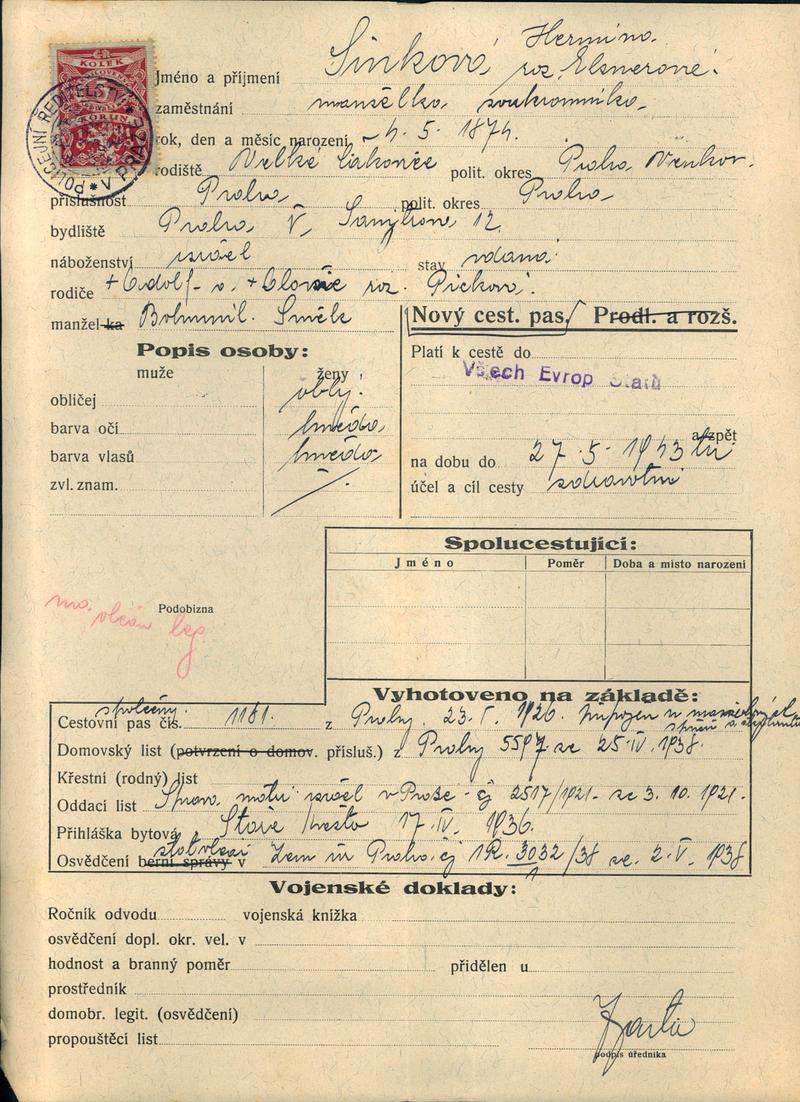 KOLEK
POLICEJNÍ ŘEDITELSTVÍ * V PRAZE *
Hermína
Jméno a příjmení Šinková roz. Elsnerová
zaměstnání manželka soukromníka
rok, den a měsíc narození 4. 5. 1874.
rodiště Velké polit. okres Praha Venkov.
příslušnost Praha polit. okres Praha
bydliště Praha V, 12.
náboženství israel stav vdaná
rodiče + Adolf a + roz. Picková.
manžel-ka Bohumil
Nový cest. pas. Prodl. a rozš.
Popis osoby:
muže ženy
Platí k cestě do
Všech Evrop Států
obličej oblý
barva očí hnědá
barva vlasů hnědá
zvl. znam.
a zpět
na dobu do 27. 5. 1943
účel a cíl cesty zdravotní
Spolucestující:
Jméno Poměr Doba a místo narození
Podobizna
občan leg.
Vyhotoveno na základě:
společný
Cestovní pas čís. 1181. z Prahy 23. 1926.
Domovský list (potvrzení o domov. přísluš.) z Prahy 5597 ze 25. IV. 1938.
Křestní (rodný) list
Oddací list Správa matrik israel v Praze čj 2517/1921 ze 3. 10. 1921.
Přihláška bytová z Staré Město 17. IV. 1936.
Osvědčení berní správy v Zem úř Praha čj 1R. 3032/38 ze 2. V. 1938
Vojenské doklady:
Ročník odvodu vojenská knížka
osvědčení dopl. okr. vel. v
hodnost a branný poměr přidělen u
prostředník
domobr. legit. (osvědčení)
propouštěcí list
podpis úředníka